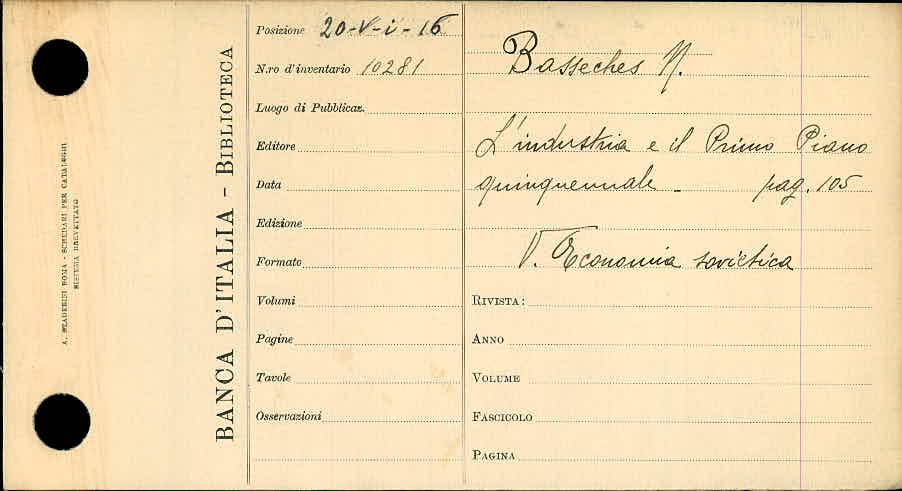 A. STADERINI ROMA - SCHEDARI PER CATALOGHI
SISTEMA BREVETTATO
BANCA D'ITALIA - BIBLIOTECA
Posizione 20-V-i-16
N.ro d'inventario 10281
Luogo di Pubblicaz.
Editore
Data
Edizione
Formato
Volumi
Pagine
Tavole
Osservazioni
Basseches N.
L'industria e il Primo Piano
quinquennale - pag. 105
V. Economia sovietica
RIVISTA:
ANNO
VOLUME
FASCICOLO
PAGINA